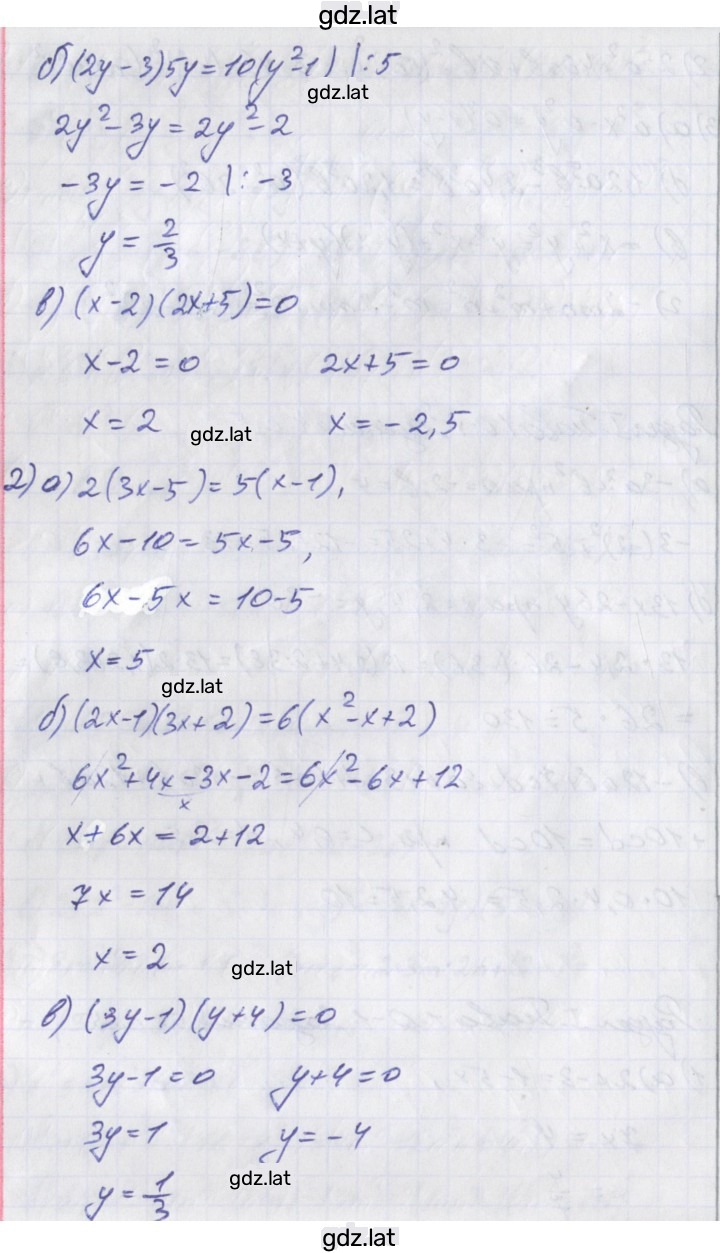 gdz.lat
б) (2y-3)5y=10(y²-1) |:5
gdz.lat
2y²-3y=2y²-2
-3y=-2 |:-3
y=2/3
в) (x-2)(2x+5)=0
x-2=0 2x+5=0
x=2 x=-2,5
gdz.lat
2) а) 2(3x-5)=5(x-1),
6x-10=5x-5,
6x-5x=10-5
x=5
gdz.lat
б) (2x-1)(3x+2)=6(x²-x+2)
6x²+4x-3x-2=6x²-6x+12
x
x+6x=2+12
7x=14
x=2
gdz.lat
в) (3y-1)(y+4)=0
3y-1=0 y+4=0
3y=1 y=-4
y=1/3
gdz.lat
gdz.lat